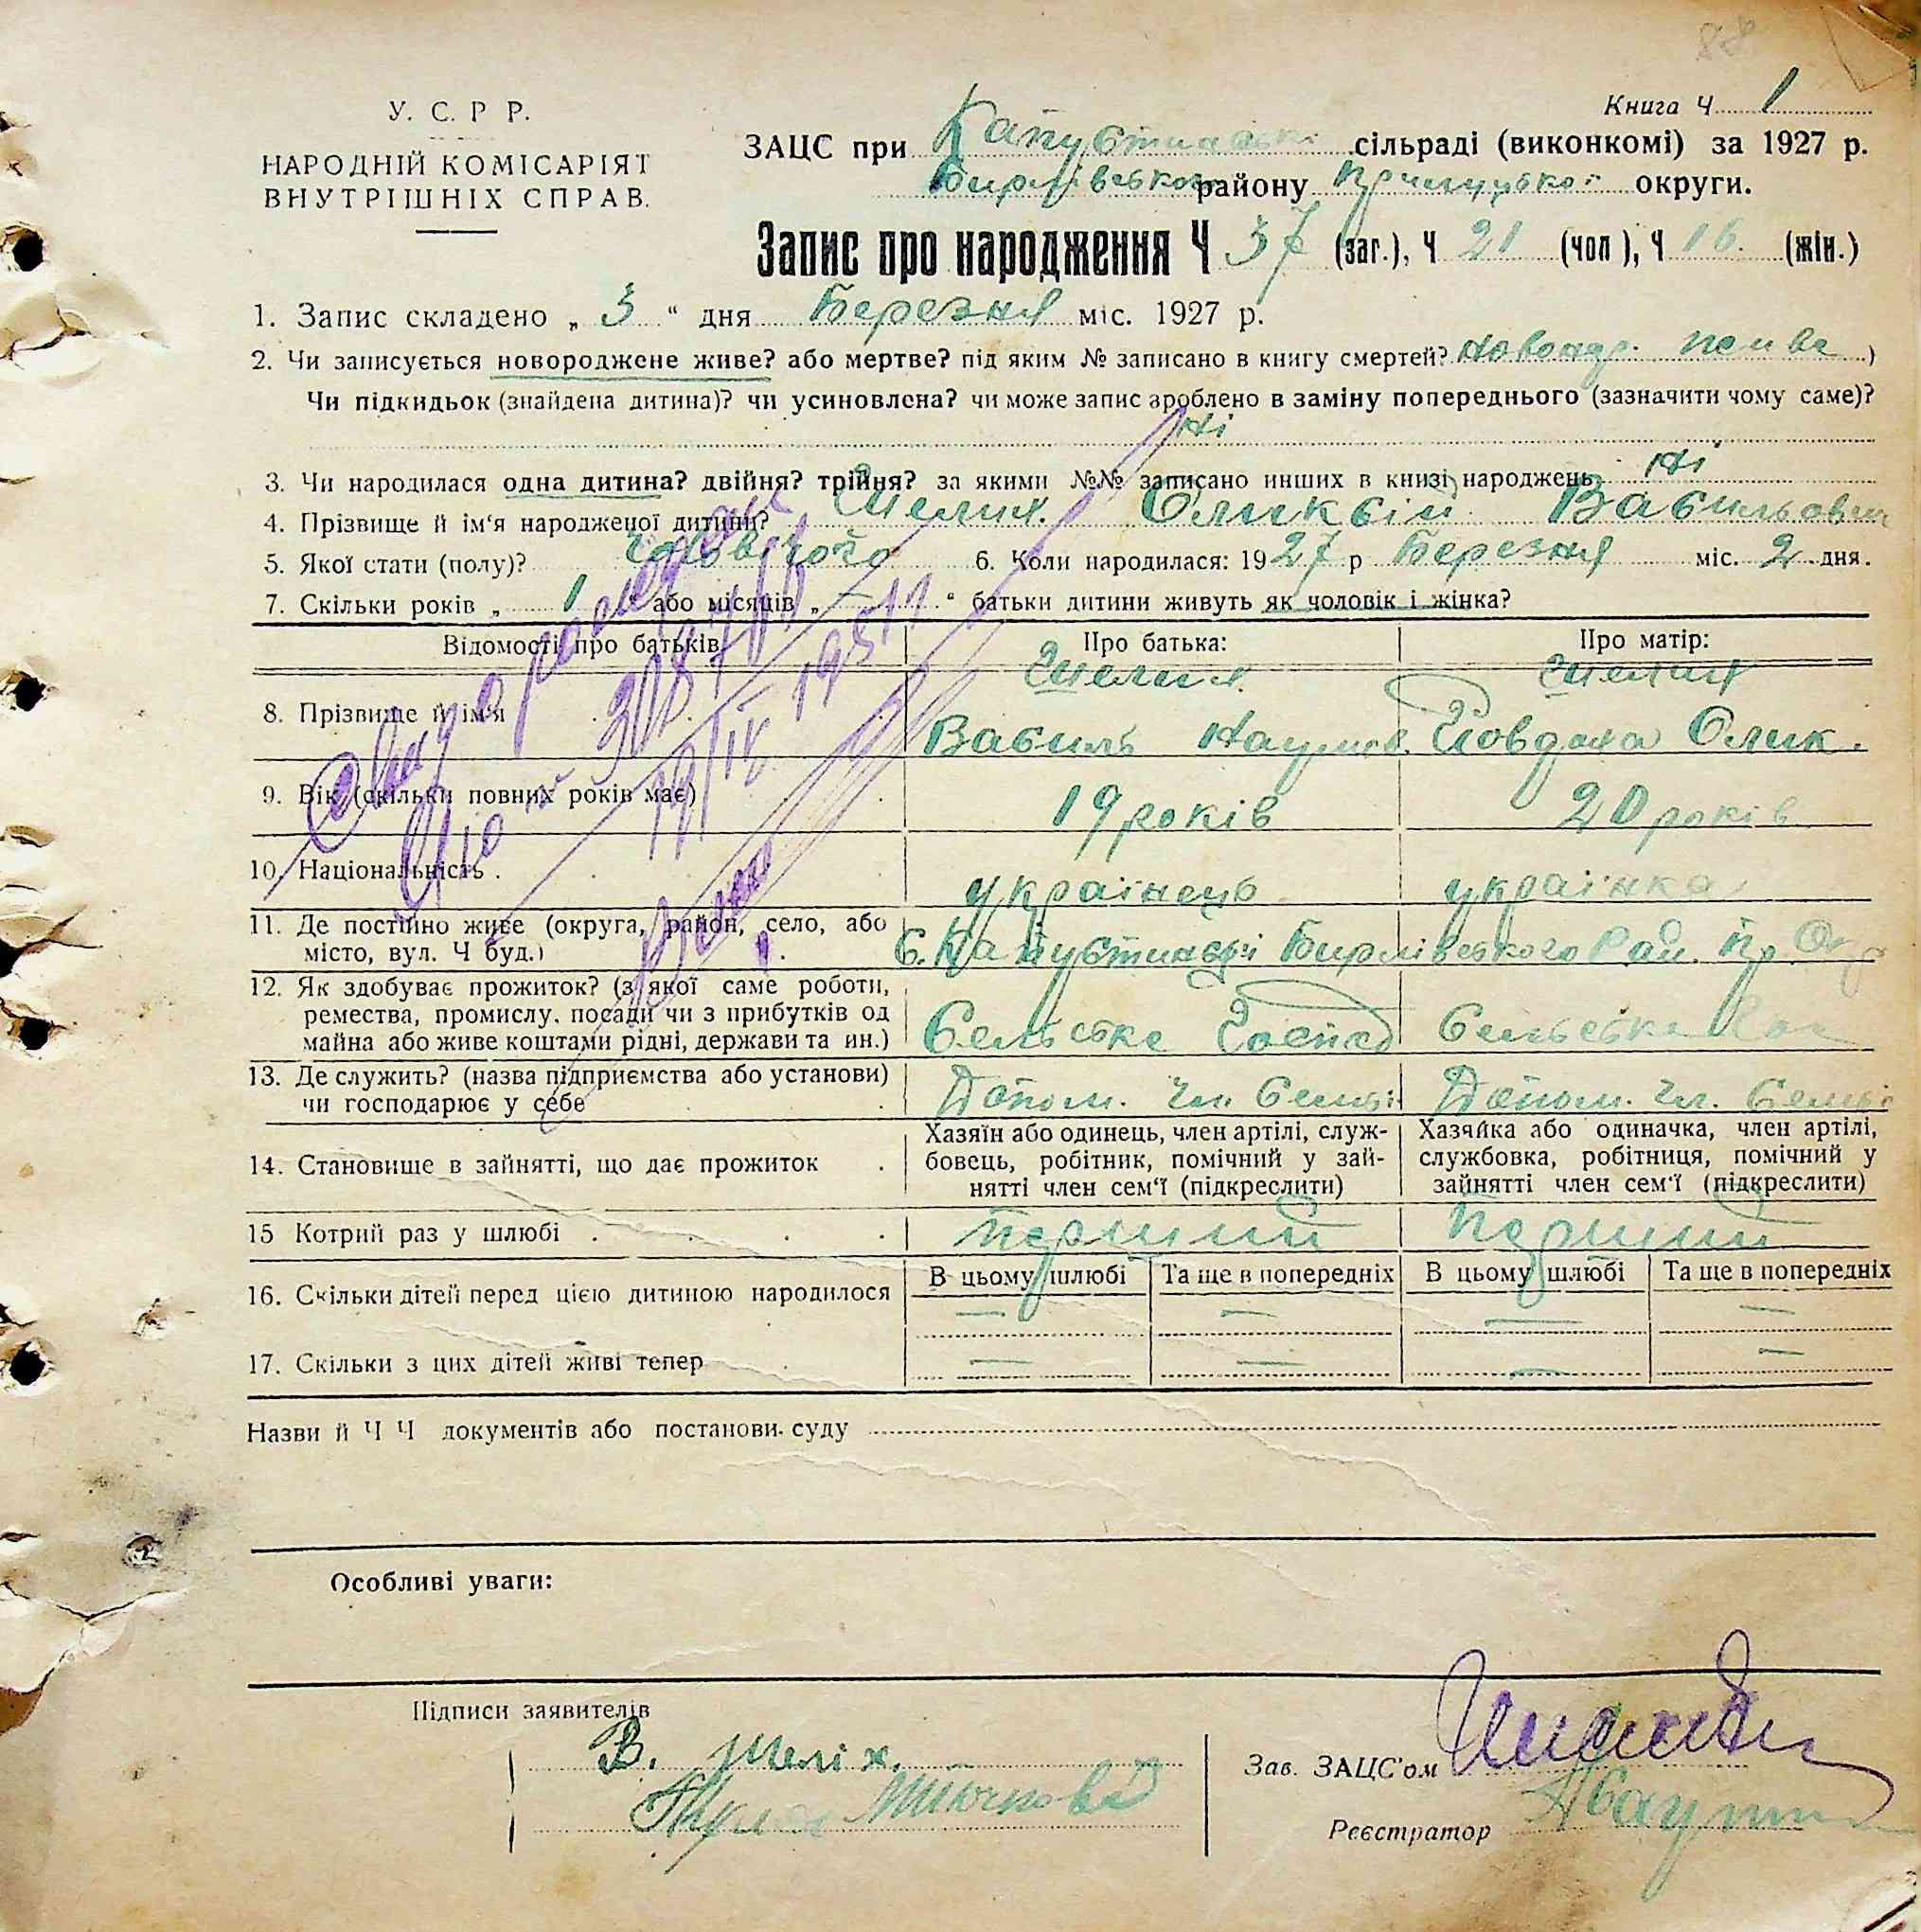 У. С. Р Р.
НАРОДНІЙ КОМІСАРІЯТ
ВНУТРІШНІХ СПРАВ.
Книга Ч 1
ЗАЦС при Капустинські сільраді (виконкомі) за 1927 р.
району Прилуцької округи.
Запис про народження Ч 37 (заг.), Ч 21 (чол), Ч 16. (жін.)
1. Запис складено „ 3 “ дня Березня міс. 1927 р.
2. Чи записується новороджене живе? або мертве? під яким № записано в книгу смертей? )
Чи підкидьок (знайдена дитина)? чи усиновлена? чи може запис зроблено в заміну попереднього (зазначити чому саме)?
Ні
3. Чи народилася одна дитина? двійня? трійня? за якими №№ записано инших в книзі народжень Ні
4. Прізвище й ім'я народженої дитини? Шелих. Оликвій Васильович
5. Якої стати (полу)? чоловічого 6. Коли народилася: 1927 р Березня міс. 2 дня.
7. Скільки років „ 1 “ або місяців „ — “ батьки дитини живуть як чоловік і жінка?
Відомості про батьків Про батька: Про матір:
Шелих Шелих
8. Прізвище й ім'я Василь Наумов. Йовдоха Олик.
9. Вік (скільки повних років має) 19 років 20 років
10. Національність українець українка
11. Де постійно живе (округа, район, село, або
місто, вул. Ч буд.)
12. Як здобуває прожиток? (з якої саме роботи,
ремества, промислу, посади чи з прибутків од
майна або живе коштами рідні, держави та ин.) Сельське Госпад Сельське
13. Де служить? (назва підприємства або установи)
чи господарює у себе Допом. чл. Семьі Допом. чл. Семьі
14. Становище в зайнятті, що дає прожиток
Хазяїн або одинець, член артілі, служ-
бовець, робітник, помічний у зай-
нятті член сем'ї (підкреслити)
Хазяйка або одиначка, член артілі,
службовка, робітниця, помічний у
зайнятті член сем'ї (підкреслити)
15 Котрий раз у шлюбі Перший Перший
В цьому шлюбі Та ще в попередніх В цьому шлюбі Та ще в попередніх
16. Скільки дітей перед цією дитиною народилося — — — —
17. Скільки з цих дітей живі тепер — — — —
Назви й Ч Ч документів або постанови суду
Особливі уваги:
Підписи заявителів
В. Шеліх.
Зав. ЗАЦС'ом
Реєстратор